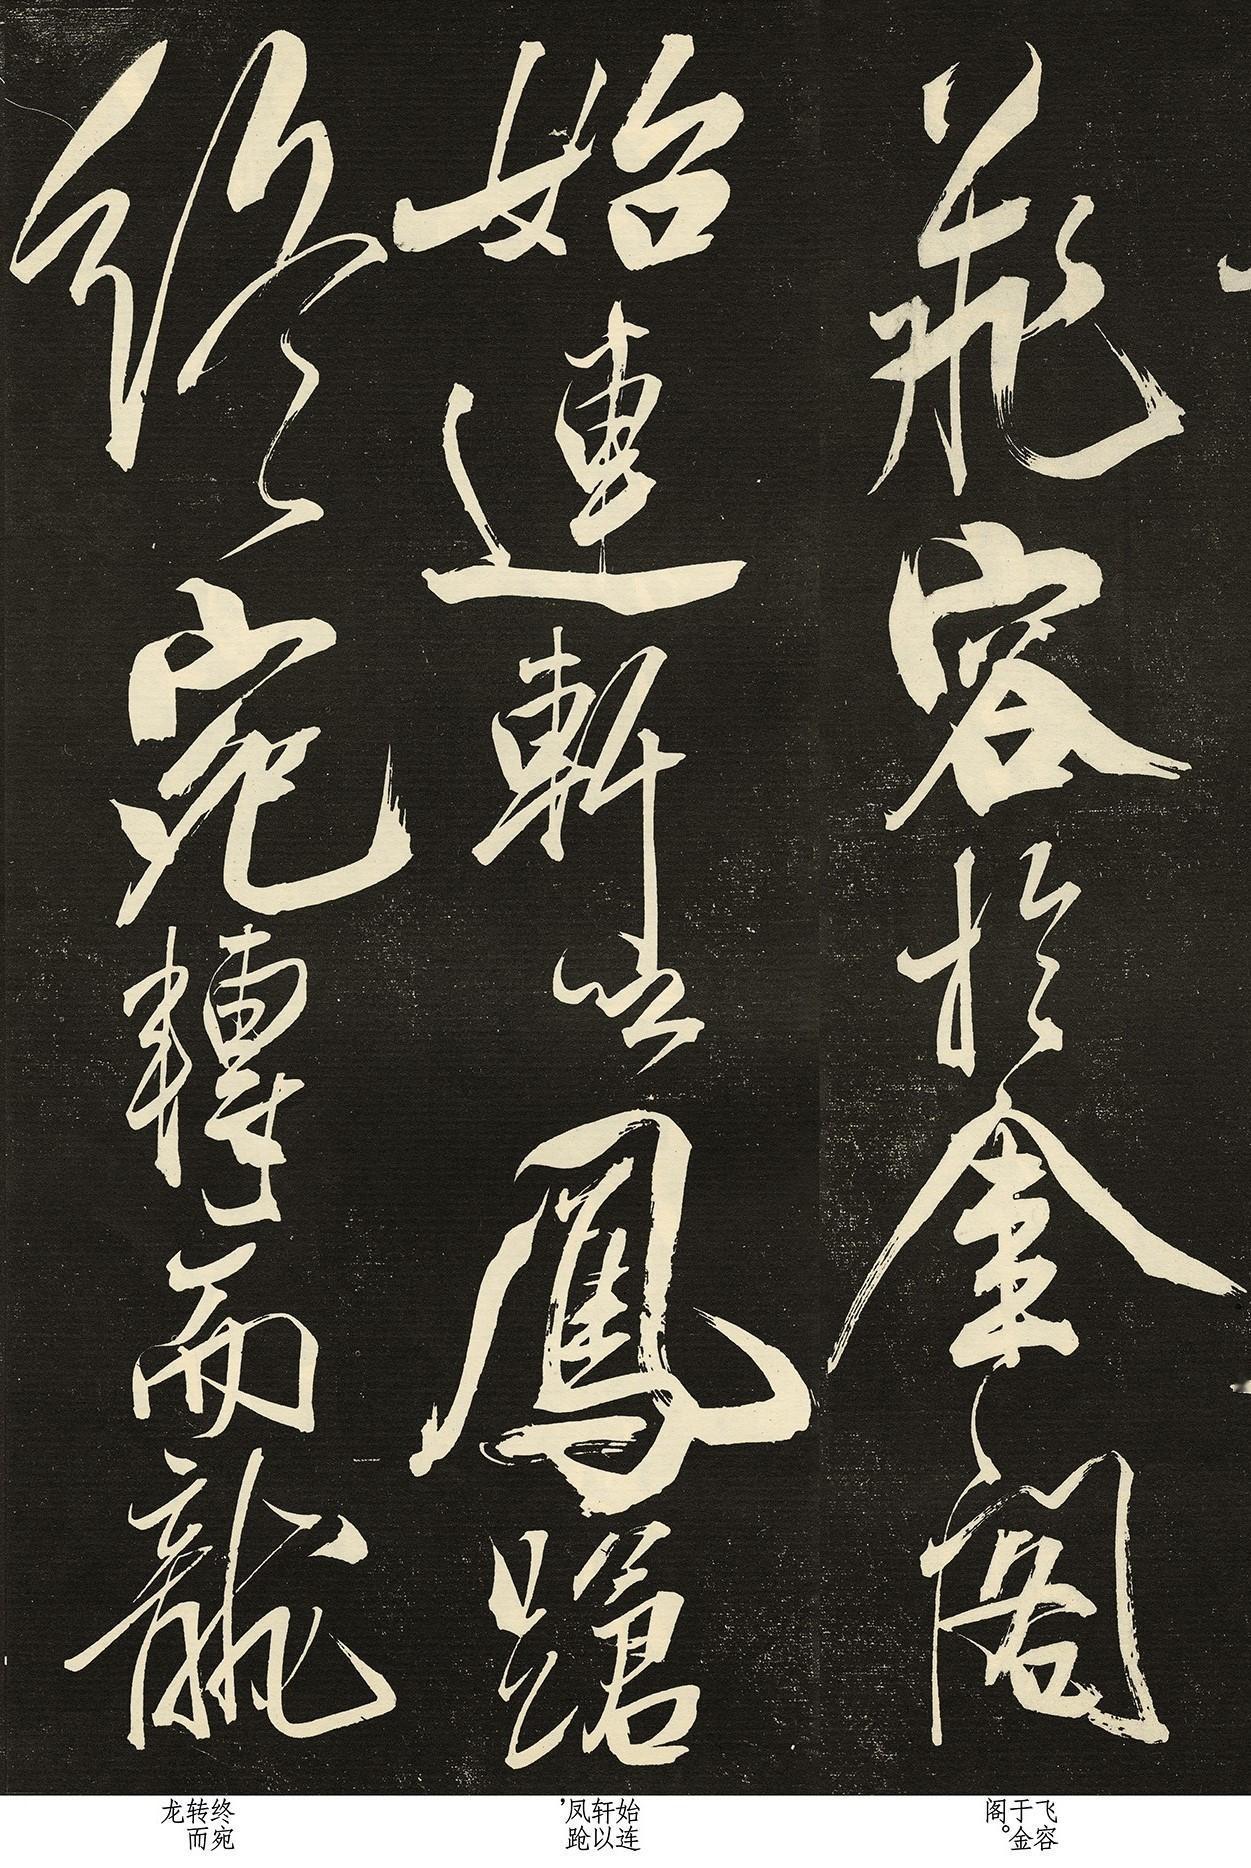 飛容於金閣
始連軒以鳳蹌
終宛轉而龍
飞容于金阁。
始连轩以凤跄，
终宛转而龙